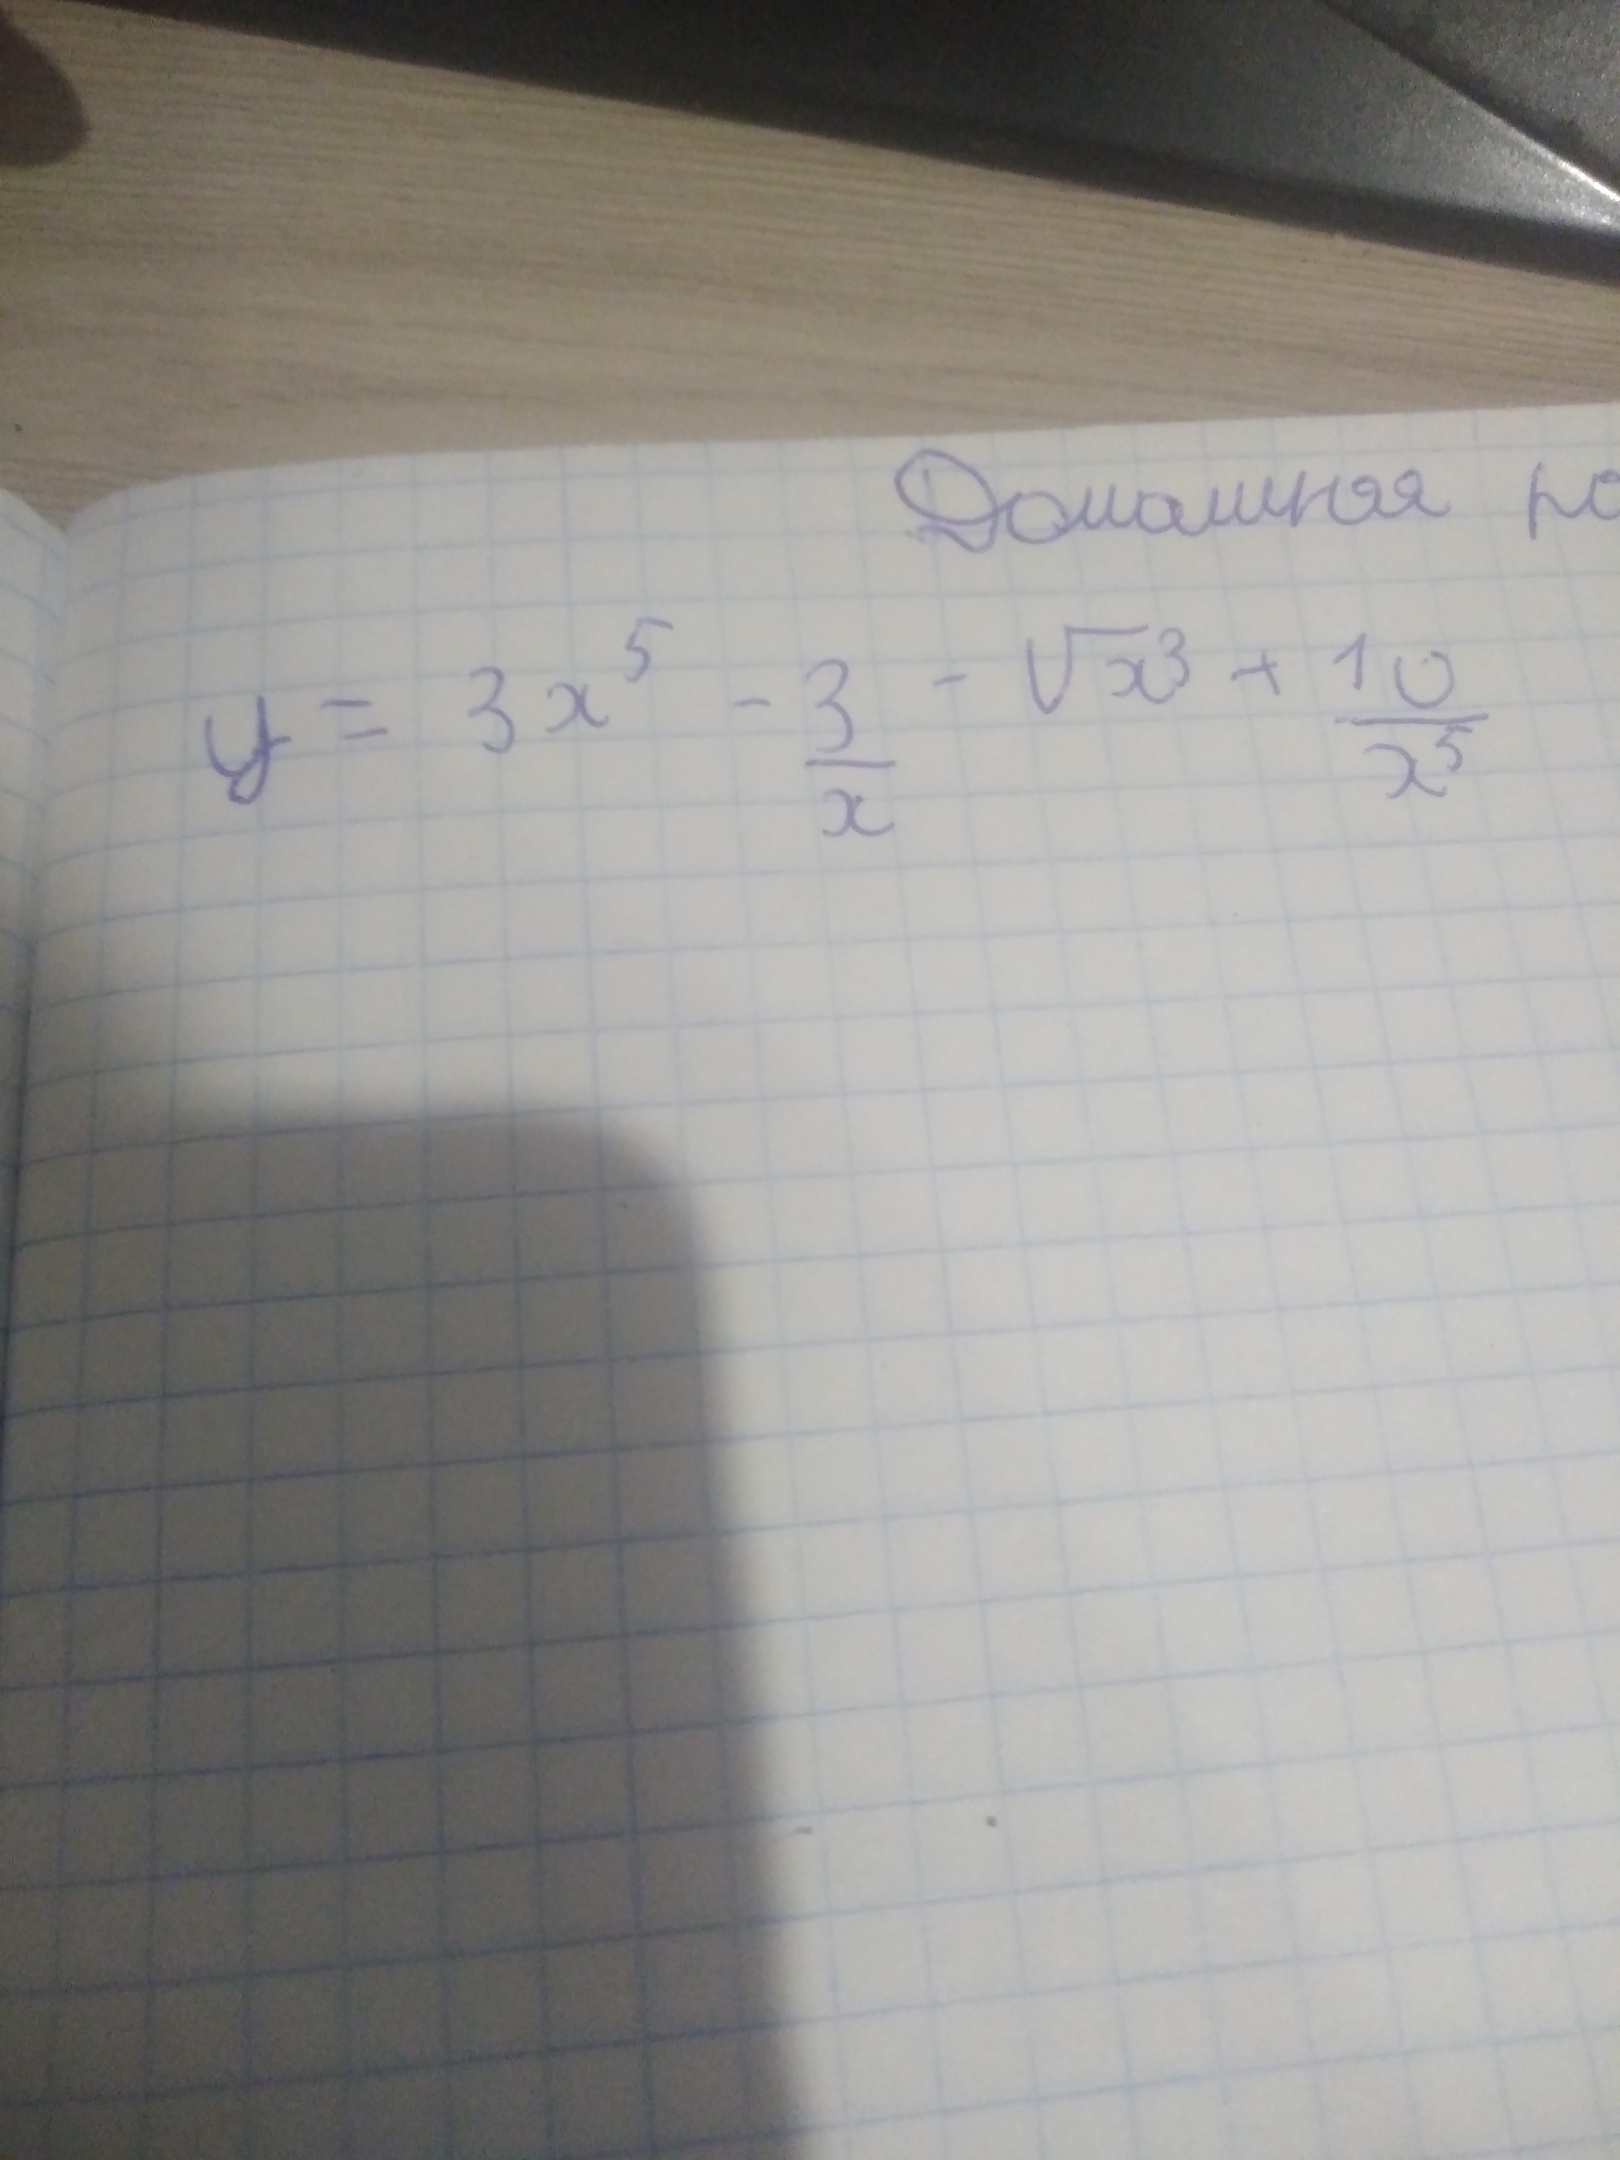 Домашняя
y = 3x⁵ - 3/x - √x³ + 10/x⁵